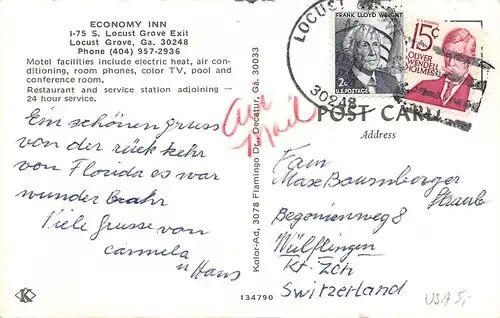 ECONOMY INN
I-75 S. Locust Grove Exit
Locust Grove, Ga. 30248
Phone (404) 957-2936
Motel facilities include electric heat, air con-
ditioning, room phones, color TV, pool and
conference room.
Restaurant and service station adjoining —
24 hour service.
Ein schönen gruss
von der rück kehr
von Florida es war
wunder
Viele Grusse von
Carmela
u Hans
Air
Mail
Kolor-Ad, 3078 Flamingo Dr., Decatur, Ga. 30033
LOCUST
30248
FRANK LLOYD WRIGHT
2c
U.S. POSTAGE
15c
OLIVER
WENDELL
HOLMES
POST CARD
Address
Fam
Max
Straub
Begonienweg 8
Wülflingen
Kt. Zch
Switzerland
K
134790
USA 5,-